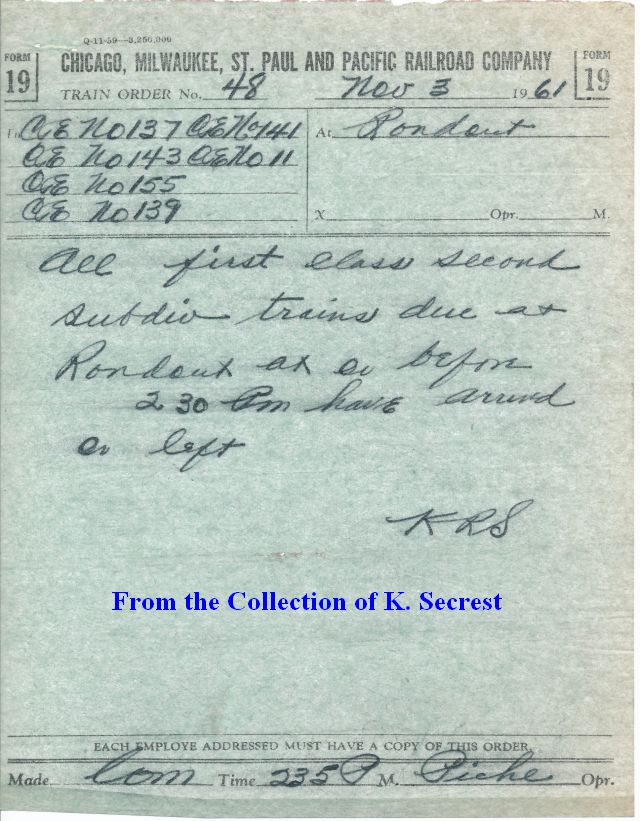 Q-11-59—3,250,000
FORM 19 CHICAGO, MILWAUKEE, ST. PAUL AND PACIFIC RAILROAD COMPANY FORM 19
TRAIN ORDER No. 48 Nov 3 1961
To C&E No 137 C&E No 141 At Rondout
C&E No 143 C&E No 11
C&E No 155
C&E No 139
X Opr. M.
All first class second
subdiv trains due at
Rondout at or before
2 30 Pm have arrived
or left
KRS
From the Collection of K. Secrest
EACH EMPLOYE ADDRESSED MUST HAVE A COPY OF THIS ORDER.
Made Com Time 235 P M. Piehe Opr.